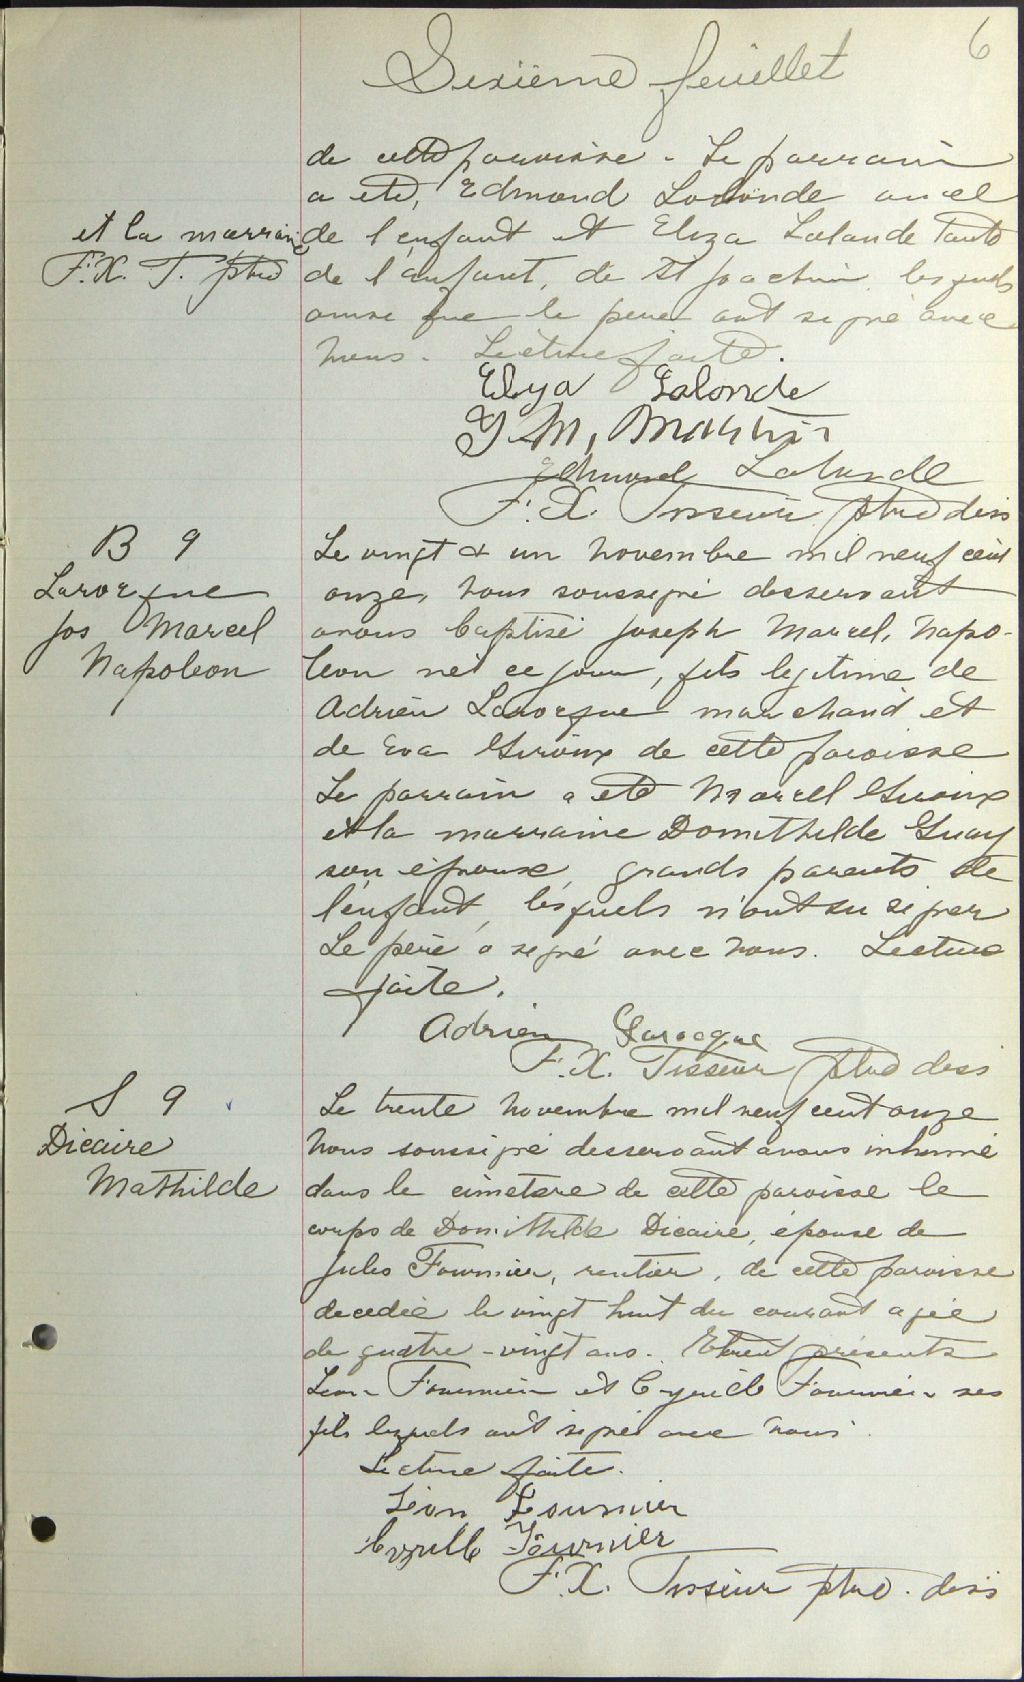 6
Sixième feuillet
de cette paroisse - Le parrain
a été, Edmond Lalonde oncle
et la marraine
de l'enfant et Eliza Lalonde tante
F. X. T. ptre
de l'enfant, de St Joachim, lesquels
ainsi que le père ont signé avec
nous. Lecture faite.
Elyza Lalonde
Edmond Lalonde
F. X. Tisseur ptre dess
B 9
Larocque
Jos Marcel
Napoleon
Le vingt & un novembre mil neuf cent
onze, nous soussigné desservant
avons baptisé Joseph Marcel, Napo-
leon né ce jour, fils legitime de
Adrien Larocque marchand et
de Eva Giroux de cette paroisse
Le parrain a été Marcel Giroux
et la marraine Domithilde Guay
son épouse, grands parents de
l'enfant, lesquels n'ont su signer
Le père a signé avec nous. Lecture
faite.
Adrien Larocque
F. X. Tisseur ptre dess
S 9
Dicaire
Mathilde
Le trente novembre mil neuf cent onze
nous soussigné desservant avons inhumé
dans le cimetière de cette paroisse le
corps de Domithilde Dicaire, épouse de
Jules Fournier, rentier, de cette paroisse
decedée le vingt huit du courant agée
de quatre-vingt ans. Etaient présents
Léon Fournier et Cyrille Fournier ses
fils lesquels ont signé avec nous.
Lecture faite.
Léon Fournier
Cyrille Fournier
F. X. Tisseur ptre. dess